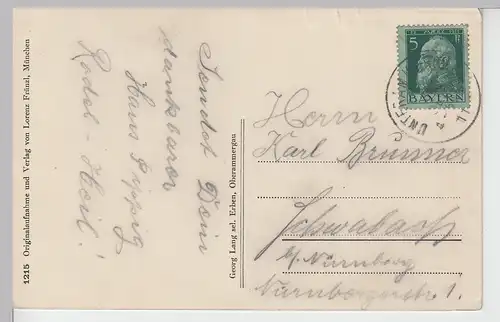 1215 Originalaufnahme und Verlag von Lorenz Fränzl, München
Sendet Dein
dankbarer
Hans
Rodel-Heil!
Georg Lang sel. Erben, Oberammergau
5
BAYERN
Herrn
Karl Brunner
Schwabach
b/Nürnberg
Nürnbergerstr 1.